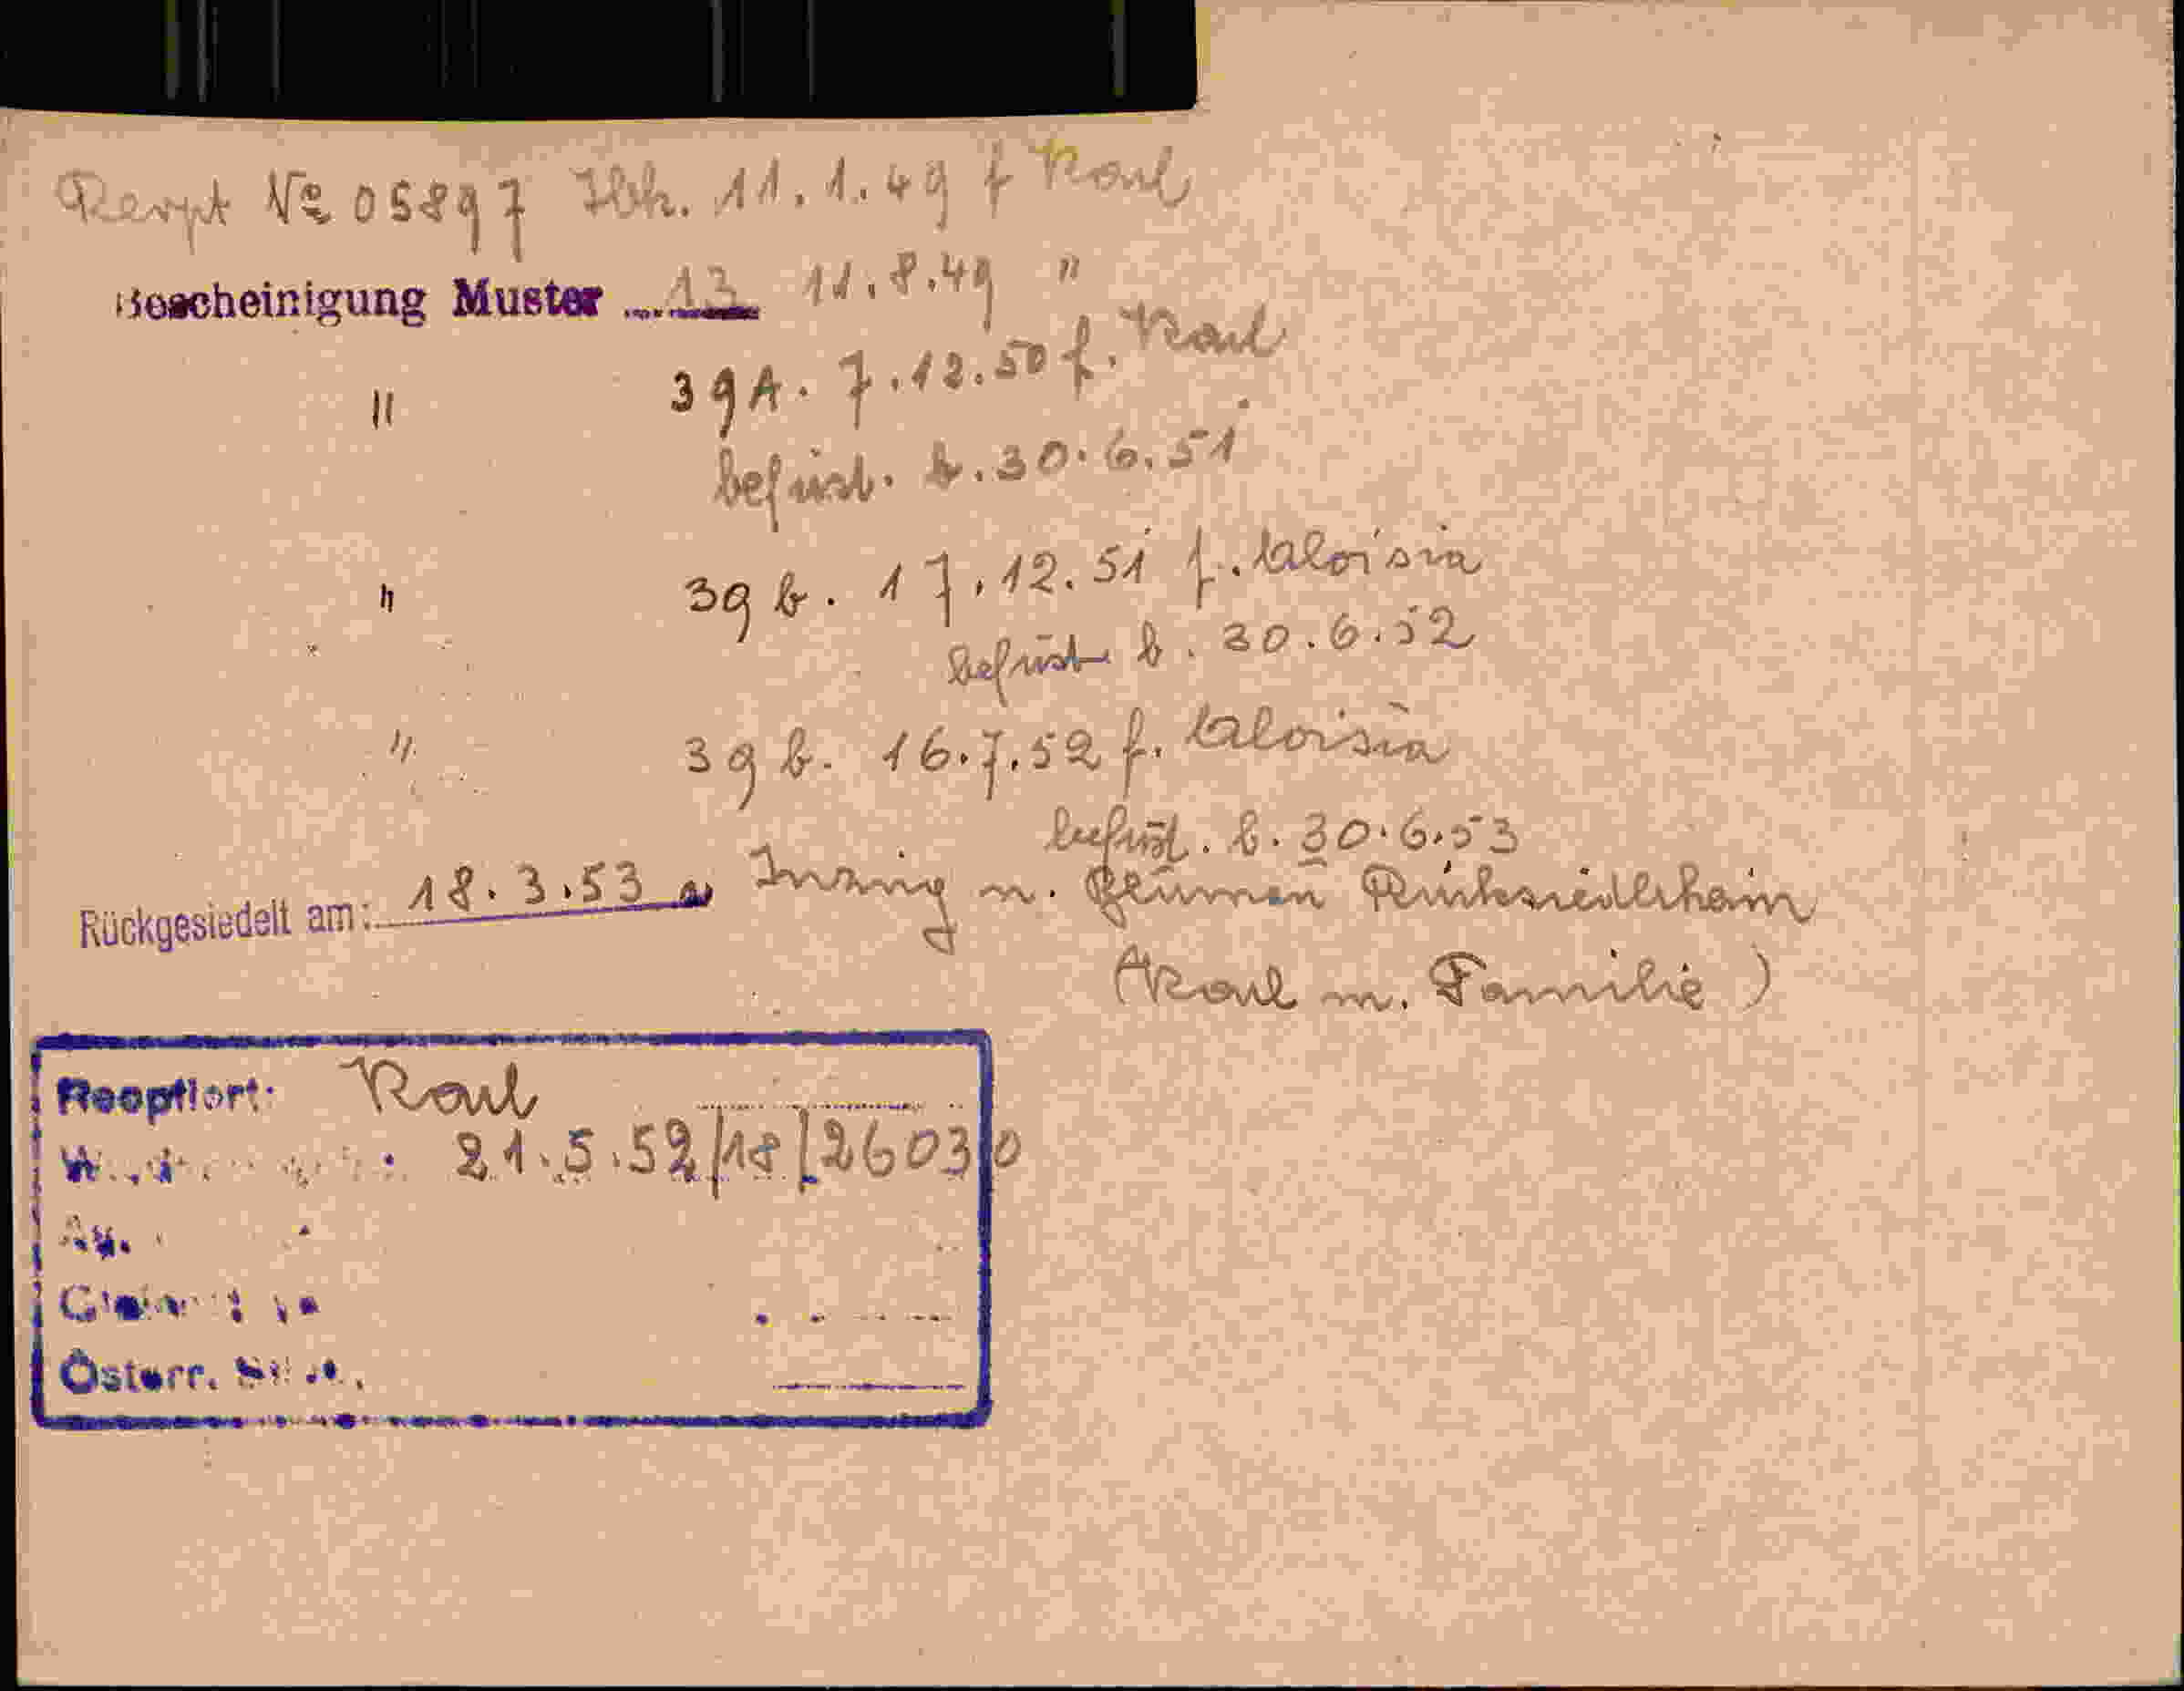 Rexpt № 05897 Ibk. 11.1.49 f Karl
Bescheinigung Muster 13 11.8.49 "
" 39A. 7.12.50 f. Karl
befrist. b. 30.6.51
" 39 b. 17.12.51 f. Aloisia
befrist b. 30.6.52
" 39 b. 16.7.52 f. Aloisia
befrist. b. 30.6.53
Rückgesiedelt am: 18.3.53 Inzing n. Rücksiedlerheim
(Karl m. Familie)
Reoptiert: Karl
21.5.52/18/26030
Österr.